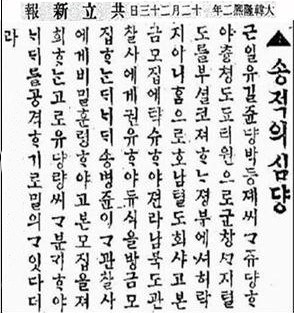 大韓隆熙二年 十二月二十三日 共立新報
▲송적의심댱
근일유길쥰댱박등제씨ᄀᆞ규댱ᄒᆞ
야츙쳥도됴티원으로군창ᄭᆞ지텰
도를부셜코져ᄒᆞᄂᆞᆫ졍부에셔허락
지아니홈으로호남텰도회샤고본
금모집에탁슈ᄒᆞ야젼라남북도관
찰사에게권유ᄒᆞ야듀식을방금모
집ᄒᆞᄂᆞᆫᄃᆡ송병쥰이ᄀᆞ관찰사
에게비밀훈령ᄒᆞ야고본모집을져
희ᄒᆞᄂᆞᆫ고로유댱량씨ᄀᆞ분긔ᄒᆞ야
공격ᄒᆞ기로밀의ᄀᆞ잇다더
라